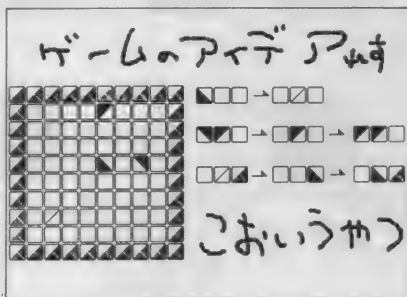 ゲームのアイデア出す
こおいうやつ